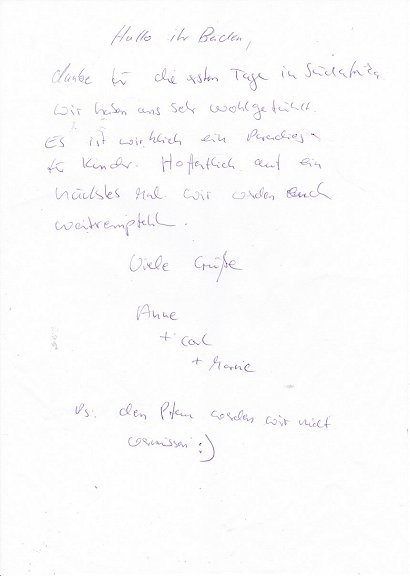 Hallo ihr Beiden,
danke für die ersten Tage in Südafrika
wir haben uns sehr wohlgefühlt.
Es ist wirklich ein Paradies
für Kinder. Hoffentlich auf ein
nächstes Mal wir werden euch
weiterempfehl.
Viele Grüße
Anne
+ Carl
+ Marie
Ps: den Pfau werden wir nicht
vermissen :)